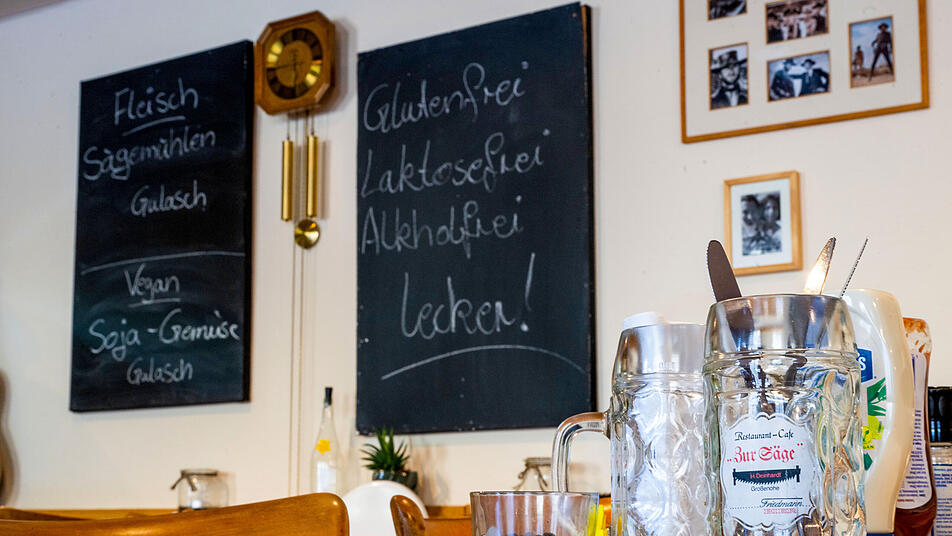 Fleisch
Sägemühlen
Gulasch
Vegan
Soja-Gemüse
Gulasch
Glutenfrei
Laktosefrei
Alkholfrei
Lecker!
Restaurant-Cafe
"Zur Säge"
H. Deinhardt
Großenohe
Friedmann